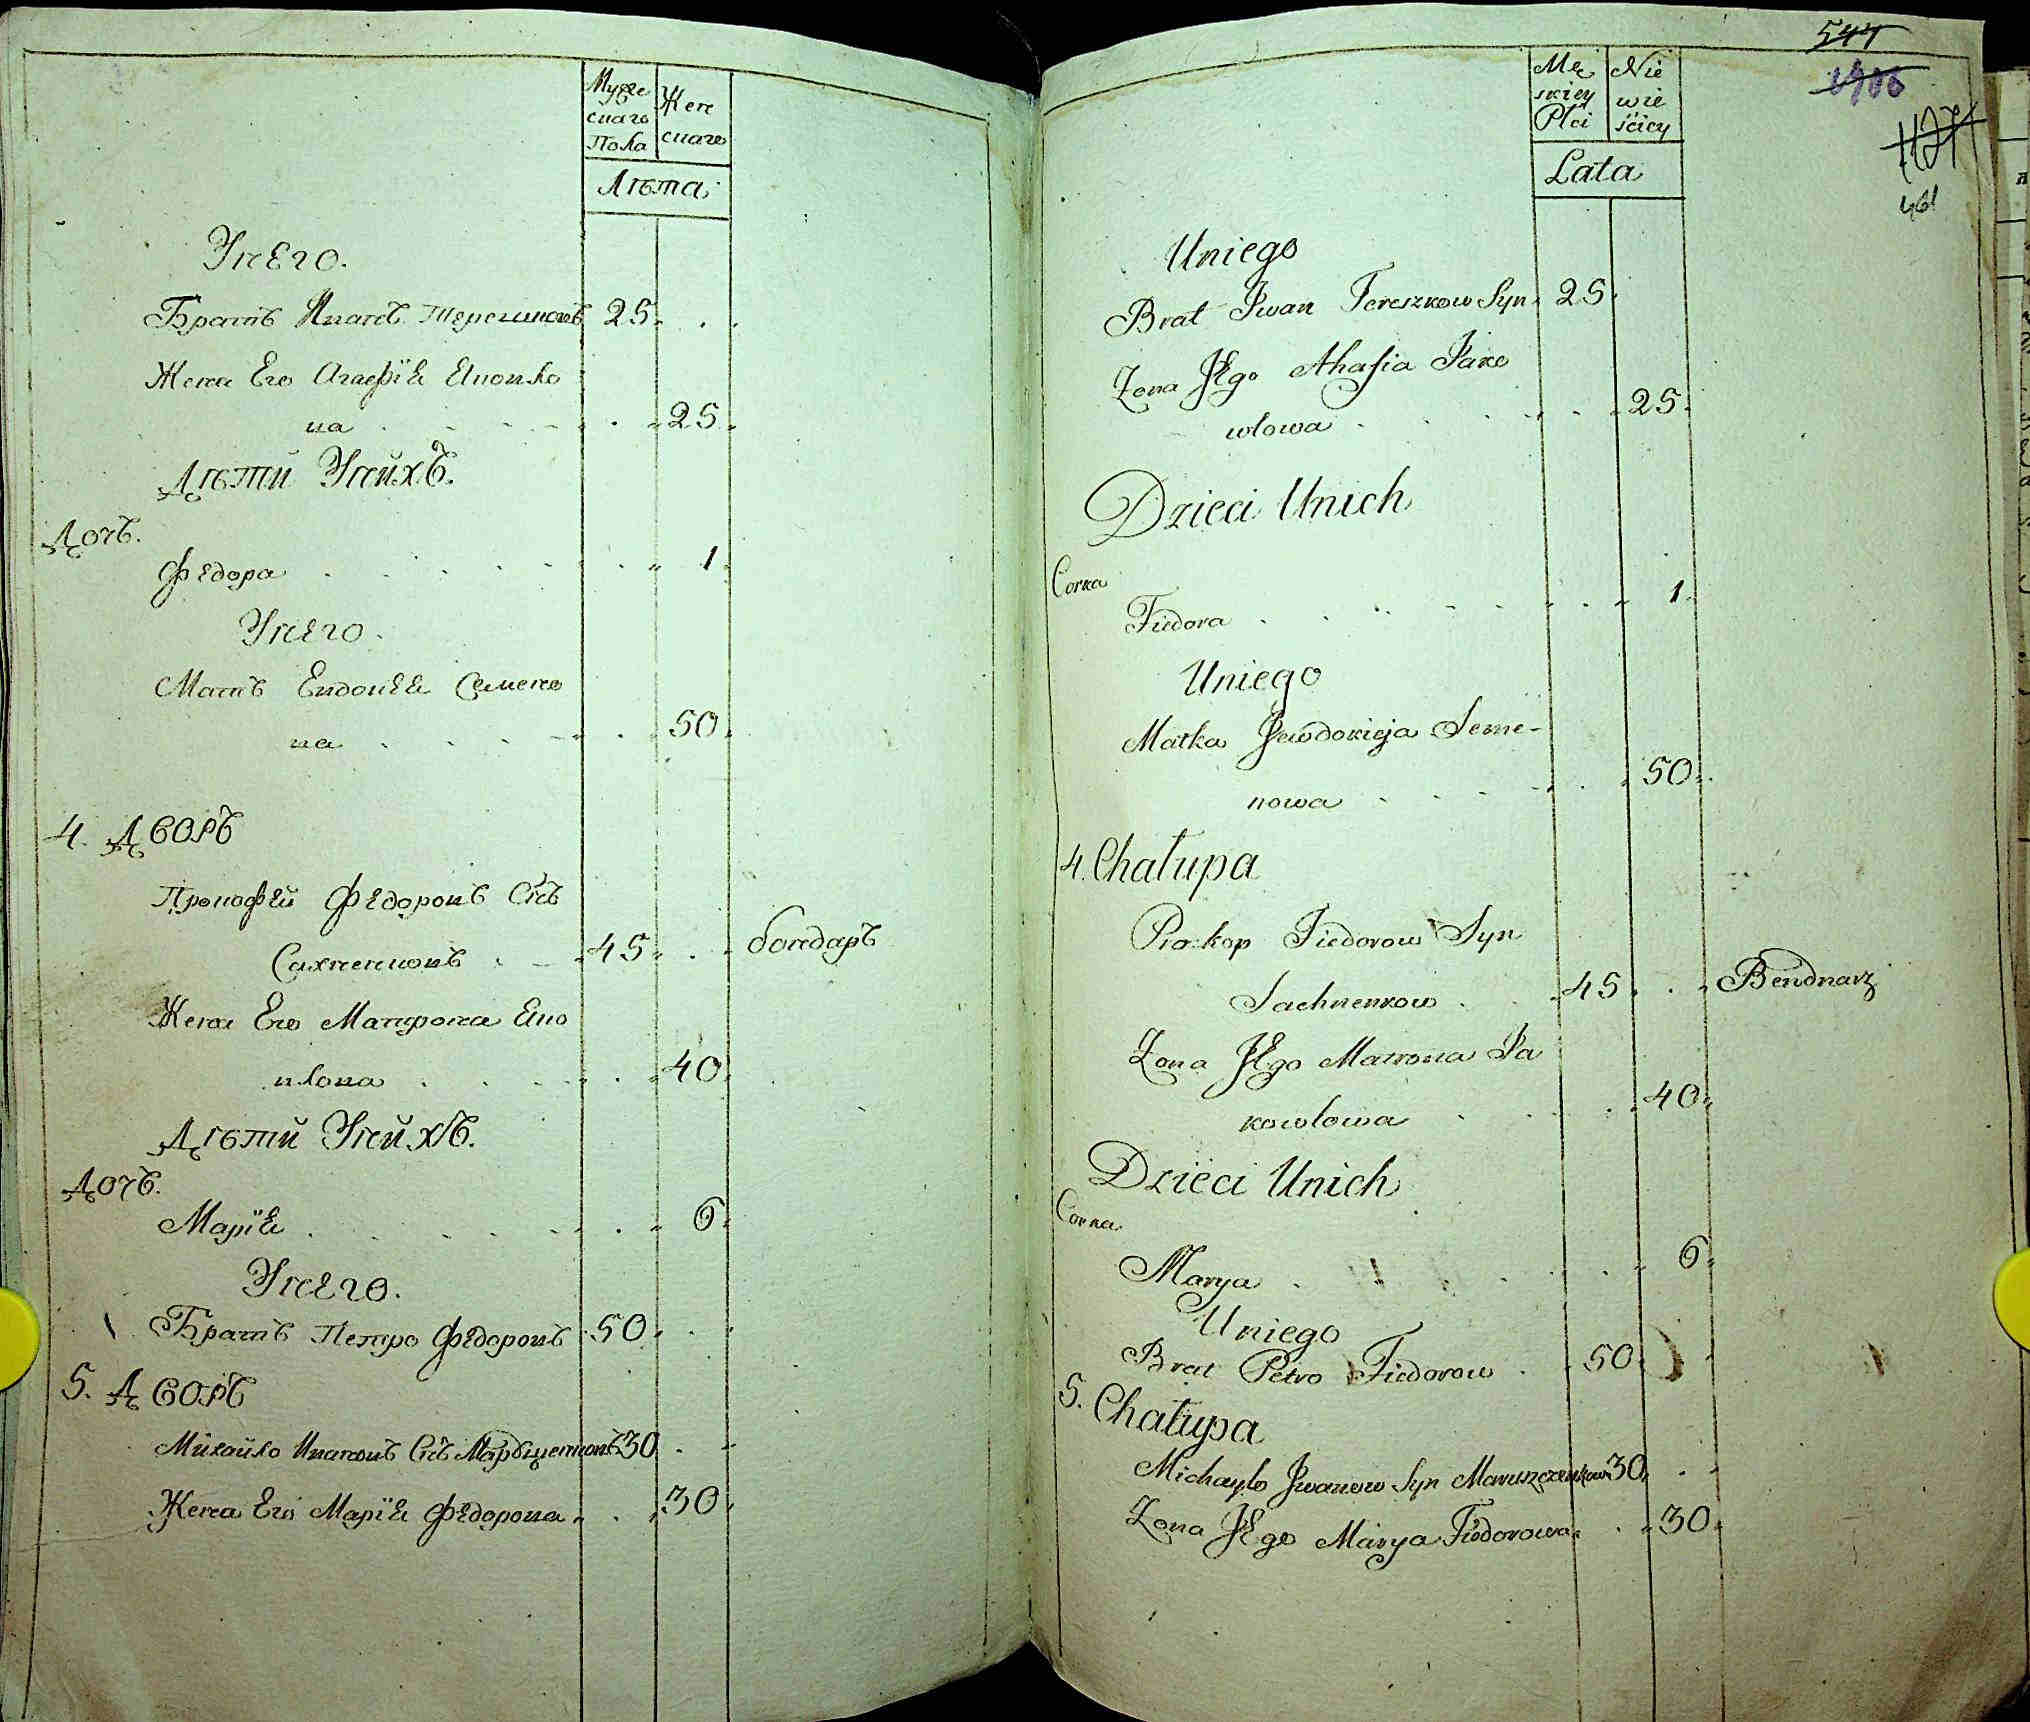 Муже
скаго
Пола
Жен
скаго
Лѣта
Унего.
Братъ Иванъ Терешковъ 25
Жена Его Агафіѣ Яковле
ва 25
Дѣти Унйхъ.
Дочь.
Федора 1
Унего.
Мать Евдокѣѣ Семено
ва 50
4. Дворъ
Прокофей Федоровъ Снъ
Сахненковъ 45 бондарь
Жена Его Матрона Яко
влова 40
Дѣтй Унйхъ.
Дочь.
Маріѣ 6
Унего.
Братъ Петро Федоровъ 50
5. Дворъ
Михайло Ивановъ Снъ Марущенковъ 30
Жена Его Маріѣ Федорова 30
544
1906
1127
461
Mę
skiey
Płci
Nie
wie
ściey
Lata
Uniego
Brat Iwan Tereszkow Syn 25
Zona JEgo Ahafia Jako
wlowa 25
Dzieci Unich
Corka
Fiedora 1
Uniego
Matka Jewdokieja Seme-
nowa 50
4. Chałupa
Prokop Fiedorow Syn
Sachnenkow 45 Bendnarz
Zona JEgo Matrona Ja
kowlowa 40
Dzieci Unich
Corka
Marya 6
Uniego
Brat Petro Fiedorow 50
5. Chałupa
Michayło Jwanow Syn Maruszczenkow 30
Zona JEgo Marya Fiedorowa 30